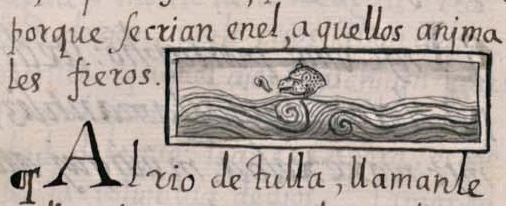 porque secrian enel, a quellos anjma
les fieros.
¶ Al rio de tulla, llamanle